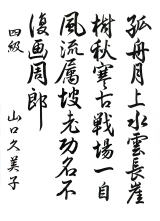 孤舟月上水雲長崖
樹秋寒古戰場一自
風流屬坡老功名不
復画周郎
四級 山口久美子